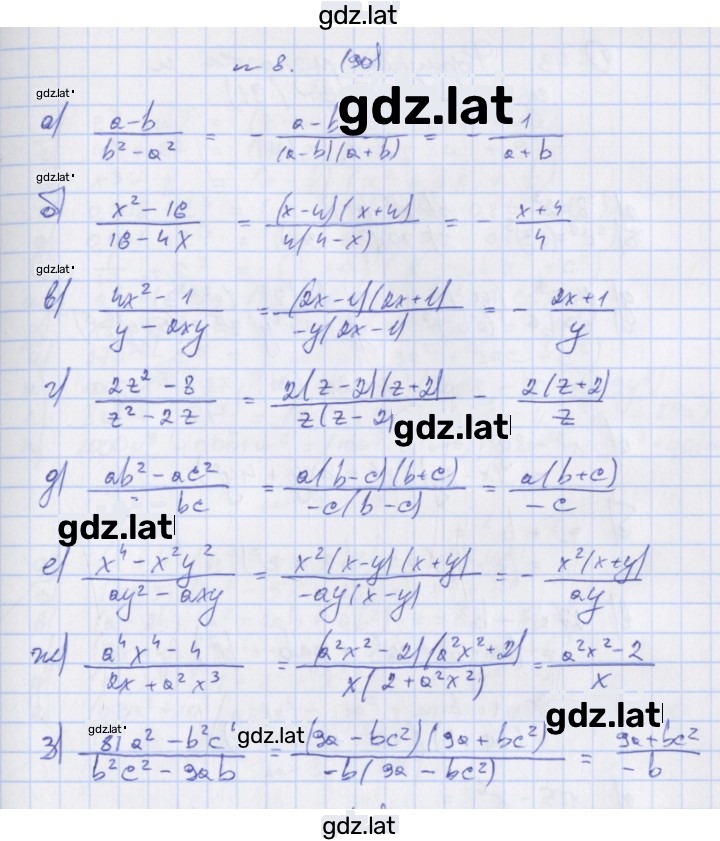 gdz.lat
n 8. (90)
gdz.lat
а) a-b / b² - a² = - a-b / (a-b)(a+b) = - 1 / a+b
gdz.lat
gdz.lat
б) x² - 16 / 16 - 4x = (x-4)(x+4) / 4(4-x) = - x+4 / 4
gdz.lat
в) 4x² - 1 / y - 2xy = (2x-1)(2x+1) / -y(2x-1) = - 2x+1 / y
г) 2z² - 8 / z² - 2z = 2(z-2)(z+2) / z(z-2) - 2(z+2) / z
gdz.lat
д) ab² - ac² / bc = a(b-c)(b+c) / -c(b-c) = a(b+c) / -c
gdz.lat
е) x⁴ - x²y² / ay² - axy = x²(x-y)(x+y) / -ay(x-y) = - x²(x+y) / ay
ж) a⁴x⁴ - 4 / 2x + a²x³ = (a²x² - 2)(a²x² + 2) / x(2 + a²x²) = a²x² - 2 / x
gdz.lat
gdz.lat
gdz.lat
з) 81a² - b²c / b²c² - 9ab = (9a - bc²)(9a + bc²) / -b(9a - bc²) = 9a + bc² / -b
gdz.lat